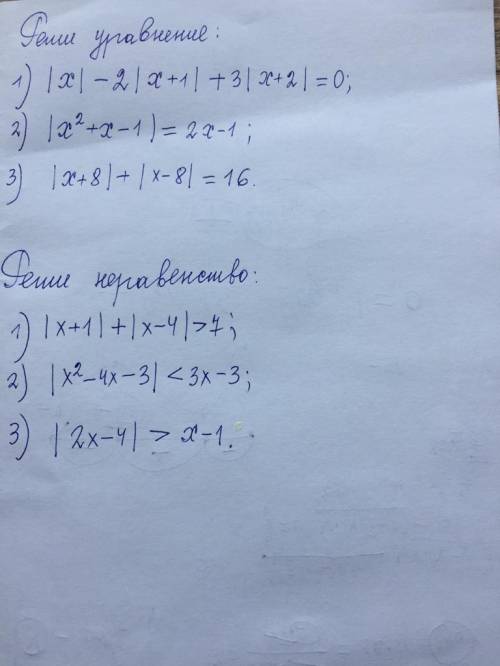 Реши уравнение:
1) |x| - 2|x+1| + 3|x+2| = 0;
2) |x²+x-1| = 2x-1;
3) |x+8| + |x-8| = 16.
Реши неравенство:
1) |x+1| + |x-4| > 7;
2) |x²-4x-3| < 3x-3;
3) |2x-4| > x-1.